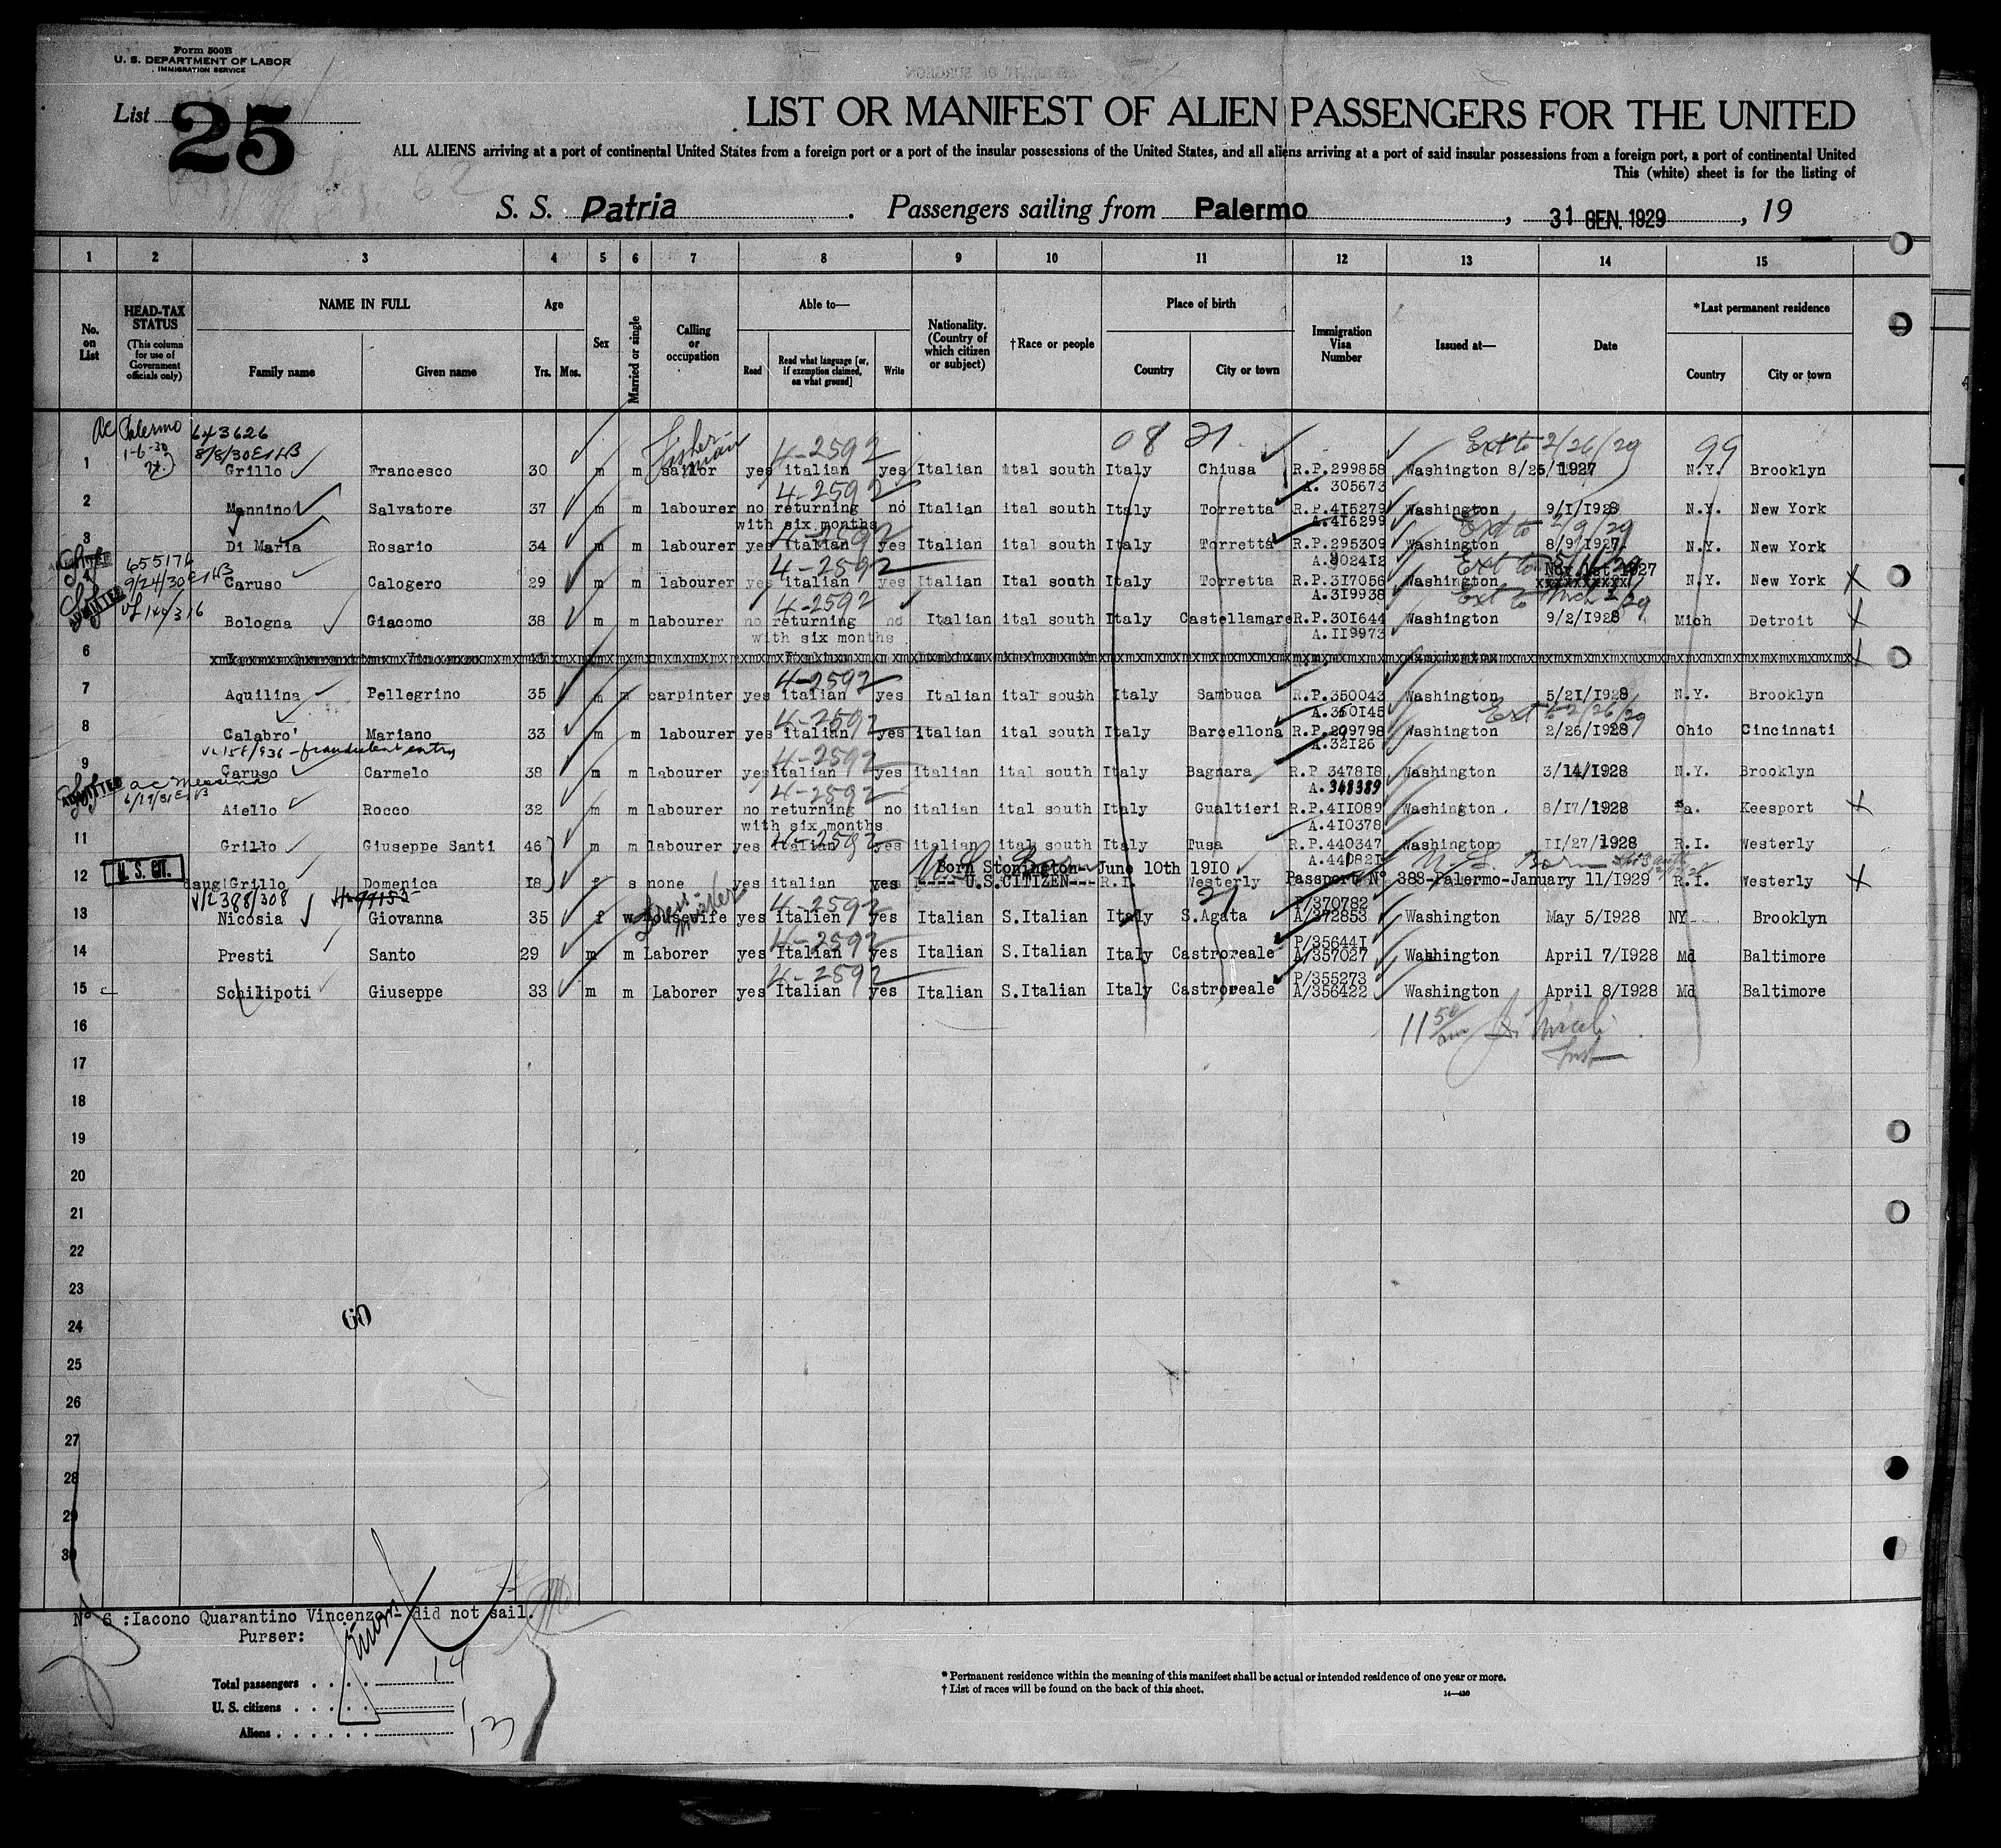 Form 500B
U. S. DEPARTMENT OF LABOR
IMMIGRATION SERVICE
List 25
LIST OR MANIFEST OF ALIEN PASSENGERS FOR THE UNITED
ALL ALIENS arriving at a port of continental United States from a foreign port or a port of the insular possessions of the United States, and all aliens arriving at a port of said insular possessions from a foreign port, a port of continental United
This (white) sheet is for the listing of
62
S. S. Patria . Passengers sailing from Palermo , 31 GEN. 1929 , 19
1 2 3 4 5 6 7 8 9 10 11 12 13 14 15
No. on List
HEAD-TAX STATUS (This column for use of Government officials only)
NAME IN FULL Family name Given name
Age Yrs. Mos.
Sex
Married or single
Calling or occupation
Able to— Read Read what language [or, if exemption claimed, on what ground] Write
Nationality. (Country of which citizen or subject)
†Race or people
Place of birth Country City or town
Immigration Visa Number
Issued at—
Date
*Last permanent residence Country City or town
Palermo 643626 Fisherman 4-2592 08 21 Ext to 2/26/29 99
1-6-30 8/8/30
1 Grillo Francesco 30 m m sailor yes italian yes Italian ital south Italy Chiusa R.P.299858 Washington 8/26/1927 N.Y. Brooklyn
A. 305673
4-2592
2 Mannino Salvatore 37 m m labourer no returning no Italian ital south Italy Torretta R.P.415279 Washington 9/1/1928 N.Y. New York
with six months A.416299 Ext to 2/9/29
4-2592
3 Di Maria Rosario 34 m m labourer yes italian yes Italian ital south Italy Torretta R.P.295309 Washington 8/9/1927 N.Y. New York
ADMITTED 655176 4-2592 A.302412 Ext to
9/24/30 Caruso Calogero 29 m m labourer yes italian yes Italian Ital south Italy Torretta R.P.317056 Washington Nov 1st 1927 N.Y. New York X
ADMITTED 4-2592 A.319938 Ext to Mch 2/29
Bologna Giacomo 38 m m labourer no returning no Italian ital south Italy Castellamare R.P.301644 Washington 9/2/1928 Mich Detroit X
with six months A.119973
6
4-2592
7 Aquilina Pellegrino 35 m m carpinter yes italian yes Italian ital south Italy Sambuca R.P.350043 Washington 5/21/1928 N.Y. Brooklyn
4-2592 A.350145 Ext to 2/26/29
8 Calabro' Mariano 33 m m labourer yes italian yes italian ital south Italy Barcellona R.P.209798 Washington 2/26/1928 Ohio Cincinnati
158/936 - fraudulent entry A.32126
4-2592
9 Caruso Carmelo 38 m m labourer yes italian yes italian ital south Italy Bagnara R.P 347818 Washington 3/14/1928 N.Y. Brooklyn
ADMITTED ac Messina 4-2592 A.348389
Aiello Rocco 32 m m labourer no returning no italian ital south Italy Gualtieri R.P.411089 Washington. 8/17/1928 Pa. Keesport X
with six months A.410378
4-2592
11 Grillo Giuseppe Santi 46 m m labourer yes italian yes italian ital south Italy Tusa R.P.440347 Washington 11/27/1928 R.I. Westerly
A.440821 U.S. Born
U. S. CIT. Born Stonington June 10th 1910
12 daug!Grillo Domenica 18 f s none yes italian yes ---- U.S.CITIZEN---R.I. Westerly Passport N° 388-Palermo-January 11/1929 R.I. Westerly X
388/308 99153 Dress maker 4-2592 21 P/370782
13 Nicosia Giovanna 35 f w Housewife yes Italien yes Italian S.Italian Italy S.Agata A/372853 Washington May 5/1928 NY Brooklyn
4-2592 P/356441
14 Presti Santo 29 m m Laborer yes Italian yes Italian S.Italian Italy Castroreale A/357027 Washington April 7/1928 Md Baltimore
4-2592 P/355273
15 Schilipoti Giuseppe 33 m m Laborer yes Italian yes Italian S.Italian Italy Castroreale A/356422 Washington April 8/1928 Md Baltimore
16
11 50 am Insp
17
18
19
20
21
22
23
24
60
25
26
27
28
29
30
N° 6 :Iacono Quarantino Vincenzo- did not sail.
Purser:
Total passengers . . . . 14
U. S. citizens . . . . . 1
Aliens . . . . . . 13
* Permanent residence within the meaning of this manifest shall be actual or intended residence of one year or more.
† List of races will be found on the back of this sheet.
14—430